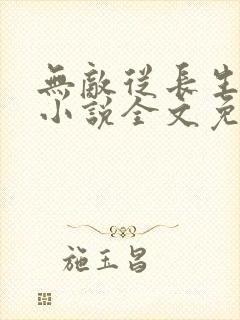 無敵從長生
小說全文免
施玉昌